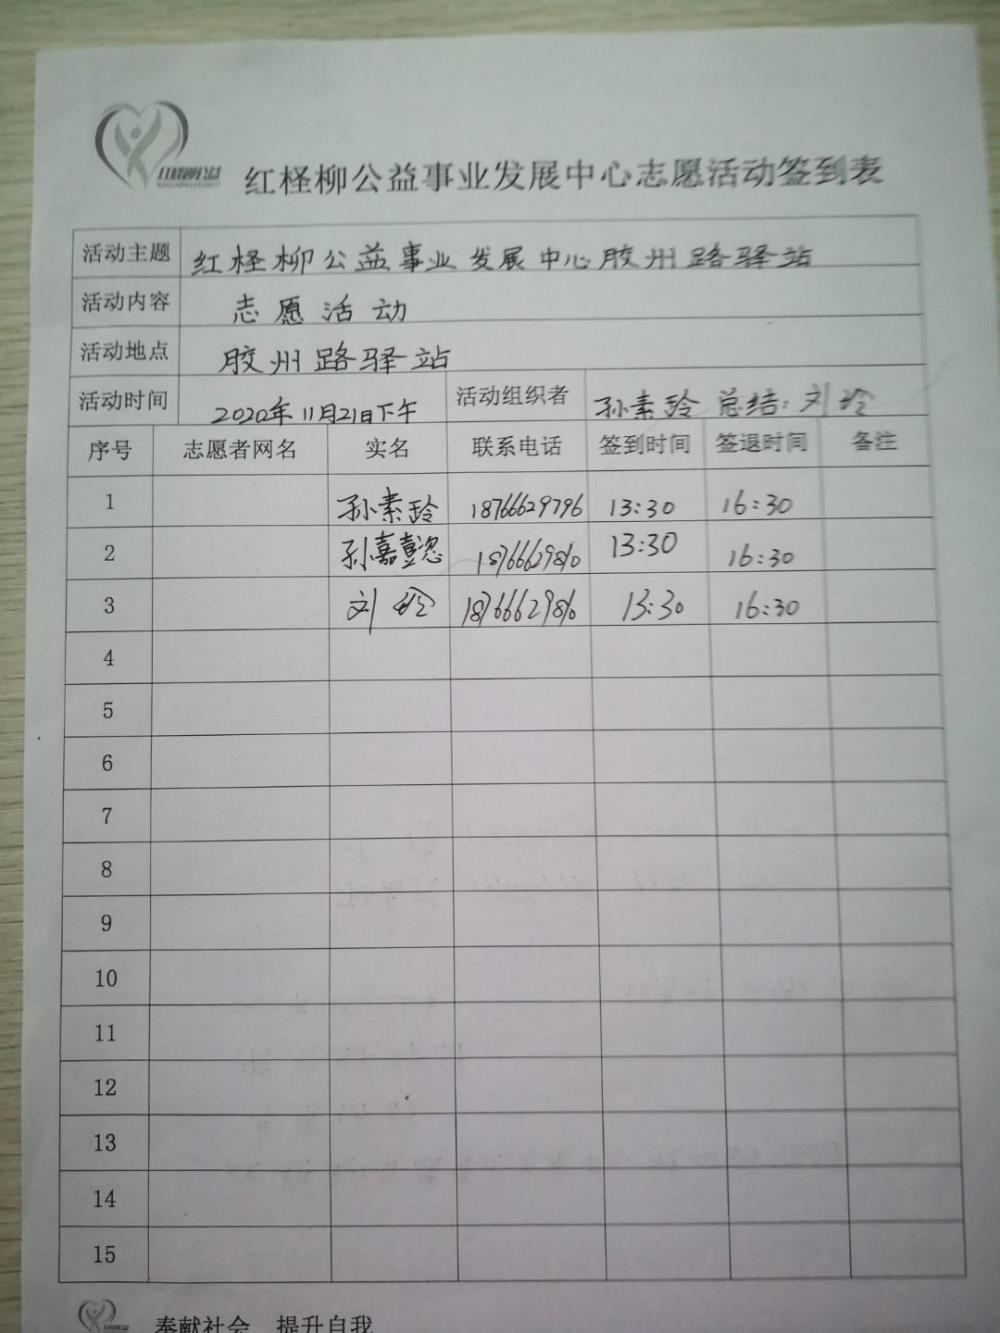 红柽柳公益事业发展中心志愿活动签到表
活动主题 红柽柳公益事业发展中心胶州路驿站
活动内容 志愿活动
活动地点 胶州路驿站
活动时间 2020年11月21日下午 活动组织者 孙素玲 总结:刘玲
序号 志愿者网名 实名 联系电话 签到时间 签退时间 备注
1 孙素玲 18766629796 13:30 16:30
2 13:30 16:30
3 刘玲 13:30 16:30
4
5
6
7
8
9
10
11
12
13
14
15
奉献社会 提升自我